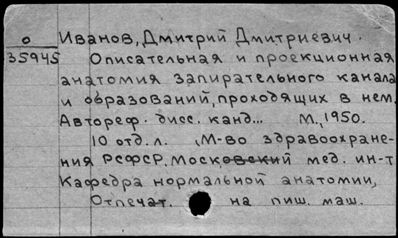 о Иванов, Дмитрий Дмитриевич.
35945 Описательная и проекционная
анатомия запирательного канала
и образований, проходящих в нем.
Автореф. дисс. канд... М., 1950.
10 отд. л. (М-во здравоохране-
ния РСФСР. Московский мед. ин-т
Кафедра нормальной анатомии,
Отпечат. на пиш. маш.